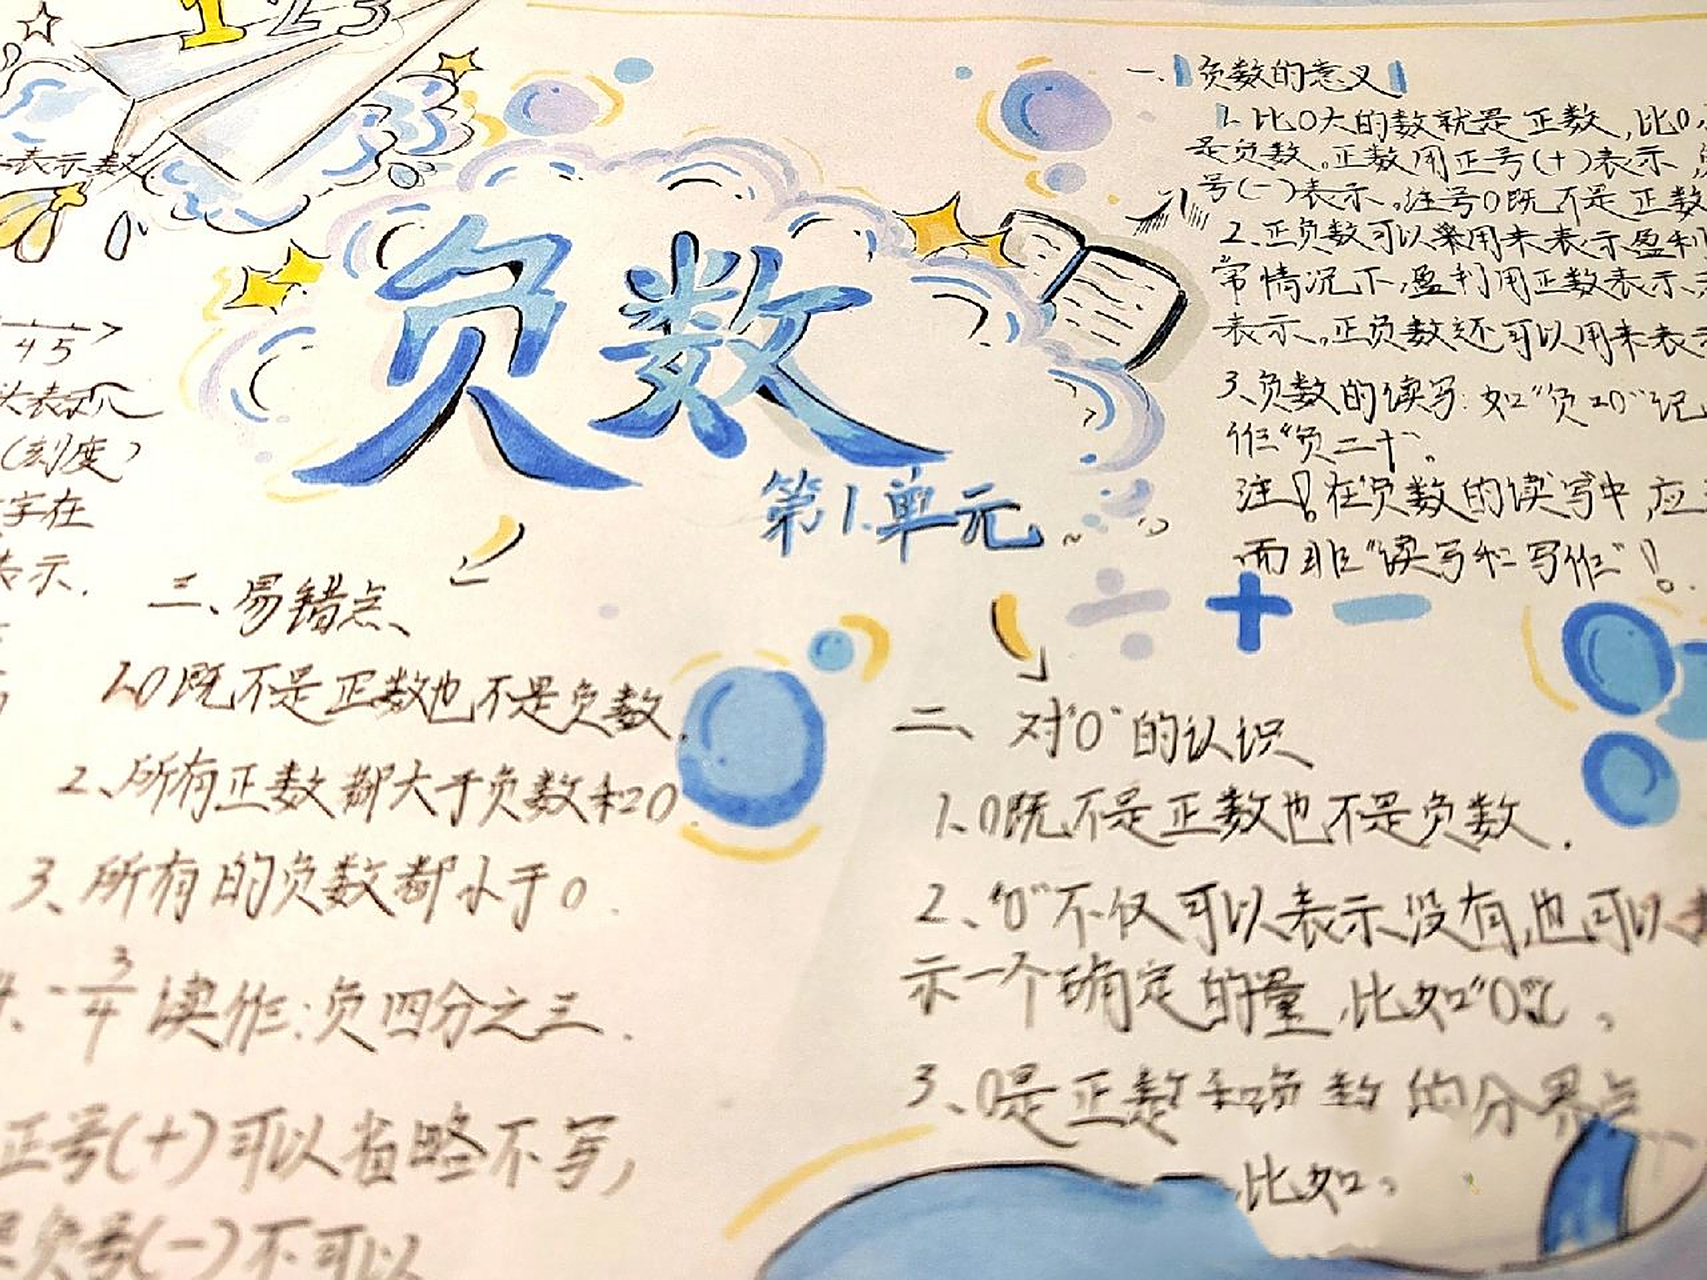 123
表示数
负数
第1单元
一、负数的意义
1.比0大的数就是正数,比0
是负数。正数用正号(+)表示,
号(-)表示。注号0既不是正数
2、正负数可以用来表示盈利
常情况下,盈利用正数表示、
表示。正负数还可以用来表示
3、负数的读写:如“负20”记
作“负二十”。
注!在负数的读写中,应
而非“读写和写作”!
45
表示
(刻度)
字在
表示.
三、易错点、
1.0既不是正数也不是负数.
2、所有正数都大于负数和0
3、所有的负数都小于0.
-3/4读作:负四分之三.
正号(+)可以省略不写,
负号(-)不可以
二、对“0”的认识
1、0既不是正数也不是负数.
2、“0”不仅可以表示没有,也可以表
示一个确定的量,比如“0℃。
3、0是正数和负数的分界点
比如。